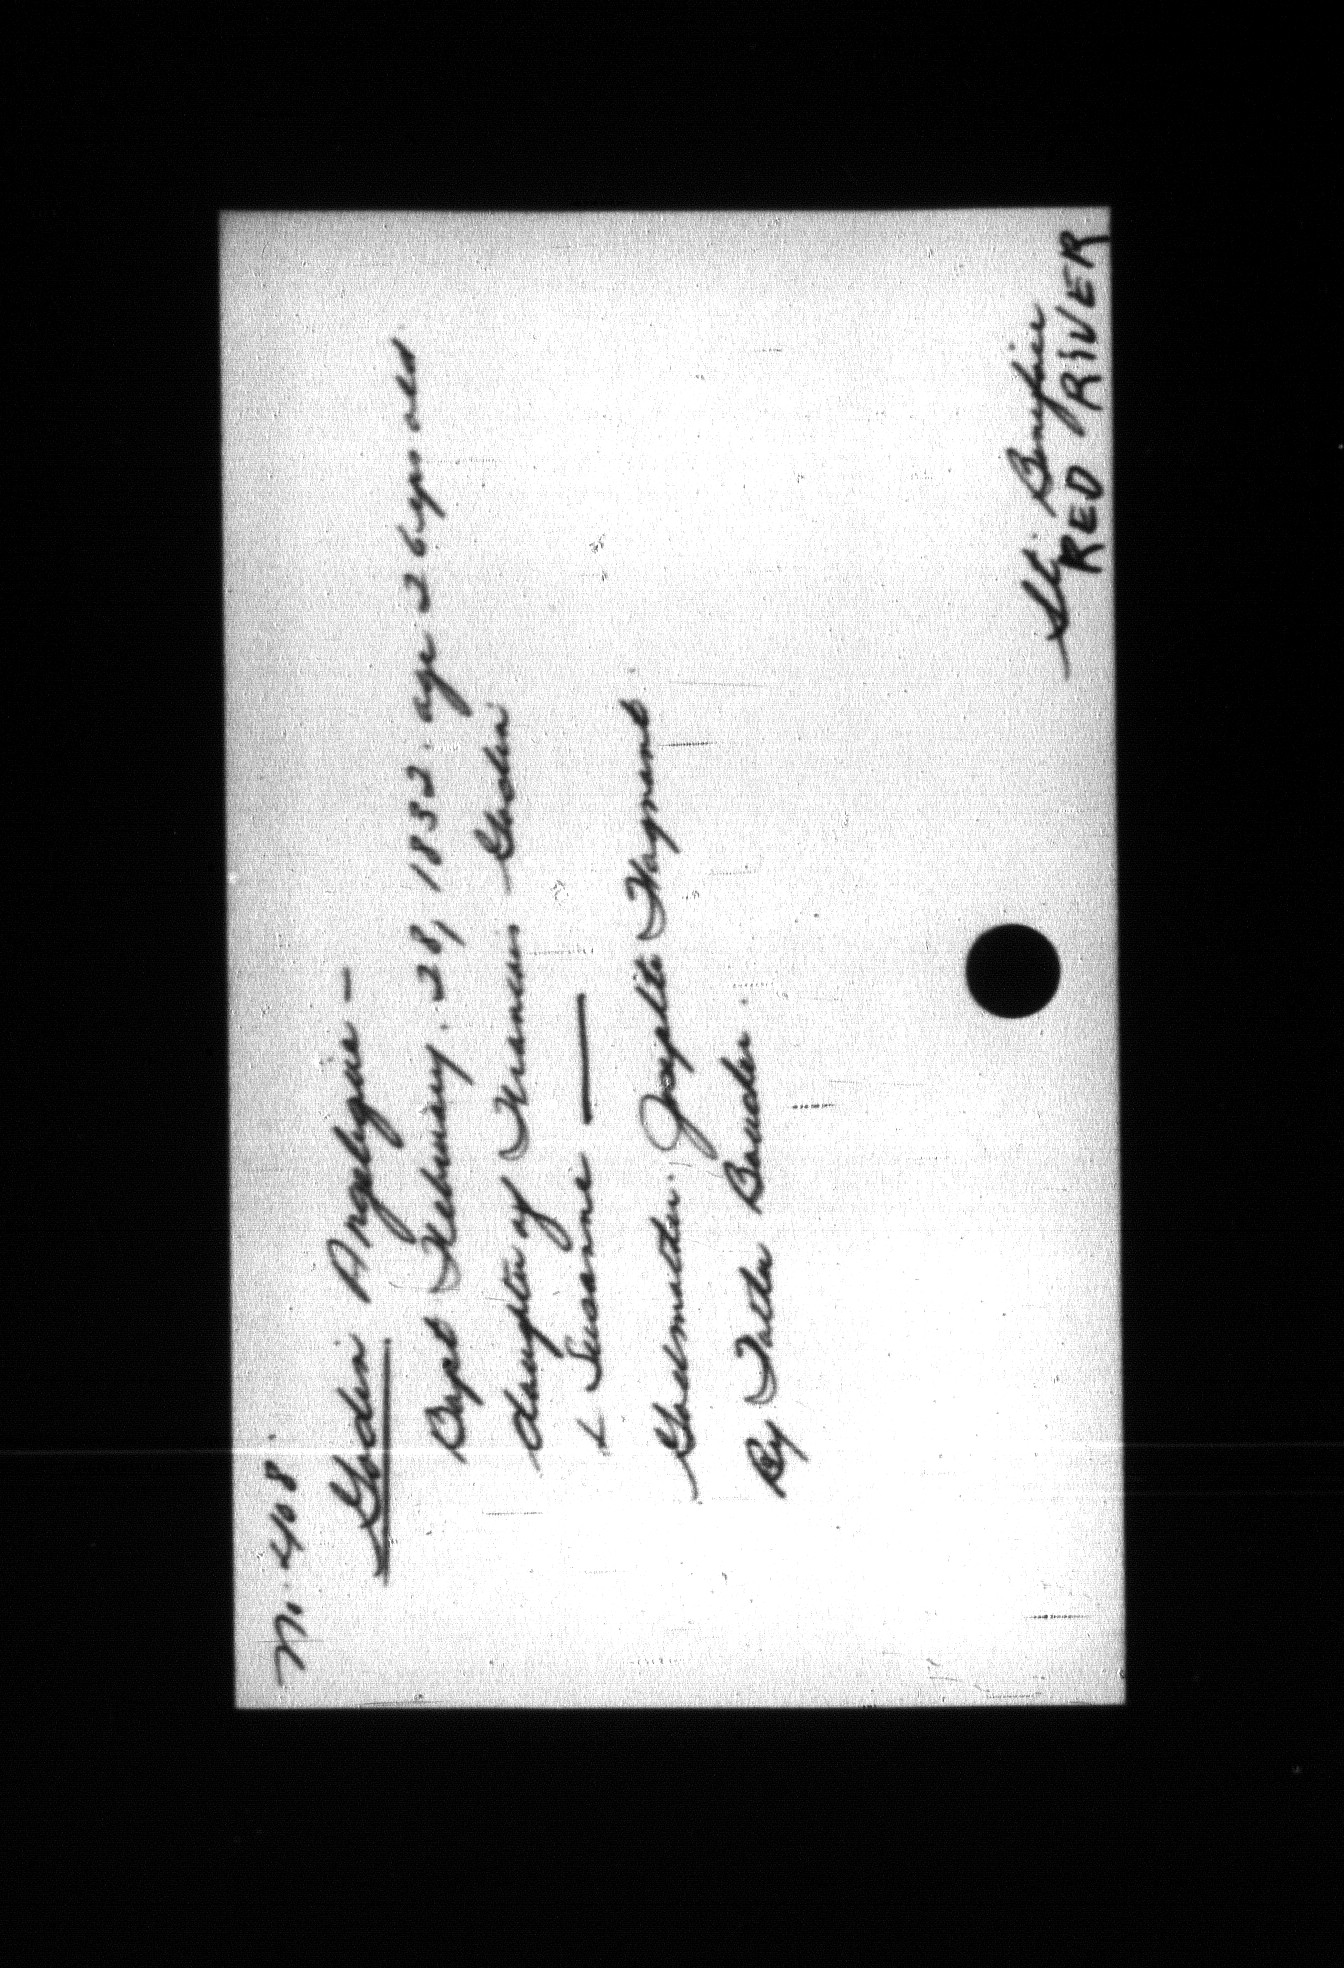 M. 408.
Godin Angelique —
Bapt February. 28, 1832. age 26 yrs old
daughter of Francois Godin
& Susanne —
Godmother. Josephte Hagnant
By Father Boucher.
St. Boniface
RED RIVER